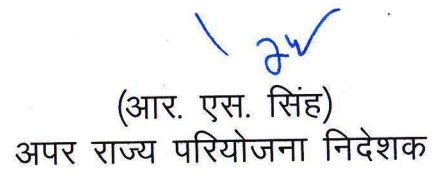 (आर. एस. सिंह)
अपर राज्य परियोजना निदेशक